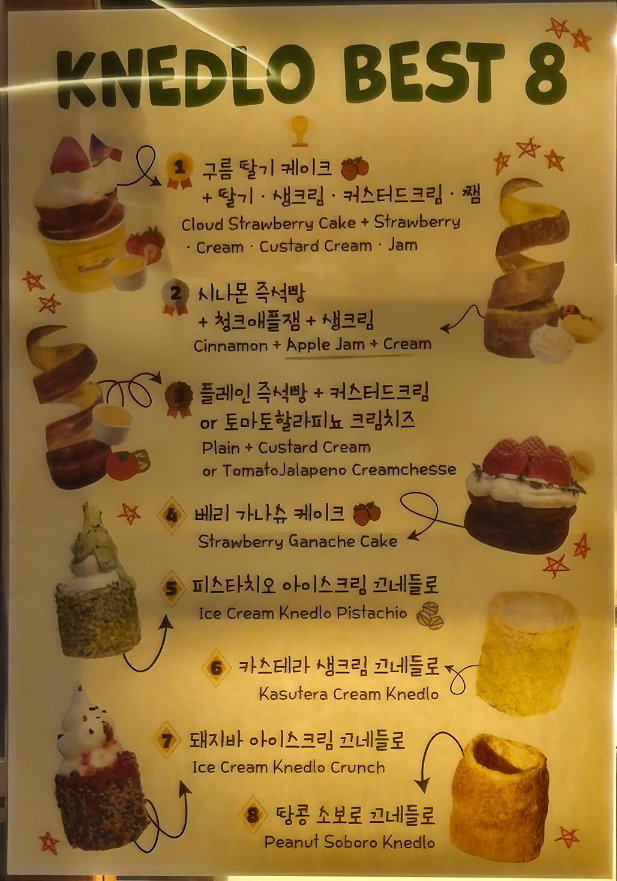 KNEDLO BEST 8
1 구름 딸기 케이크
+ 딸기 · 생크림 · 커스터드크림 · 잼
Cloud Strawberry Cake + Strawberry
· Cream · Custard Cream · Jam
2 시나몬 즉석빵
+ 청크애플잼 + 생크림
Cinnamon + Apple Jam + Cream
3 플레인 즉석빵 + 커스터드크림
or 토마토할라피뇨 크림치즈
Plain + Custard Cream
or TomatoJalapeno Creamchesse
4 베리 가나슈 케이크
Strawberry Ganache Cake
5 피스타치오 아이스크림 끄네들로
Ice Cream Knedlo Pistachio
6 카스테라 생크림 끄네들로
Kasutera Cream Knedlo
7 돼지바 아이스크림 끄네들로
Ice Cream Knedlo Crunch
8 땅콩 소보로 끄네들로
Peanut Soboro Knedlo